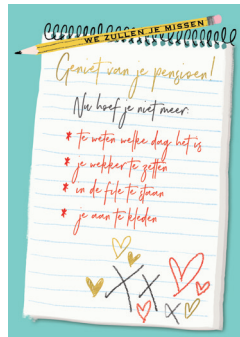 WE ZULLEN JE MISSEN
Geniet van je pensioen!
Nu hoef je niet meer:
* te weten welke dag het is
* je wekker te zetten
* in de file te staan
* je aan te kleden
XX XX